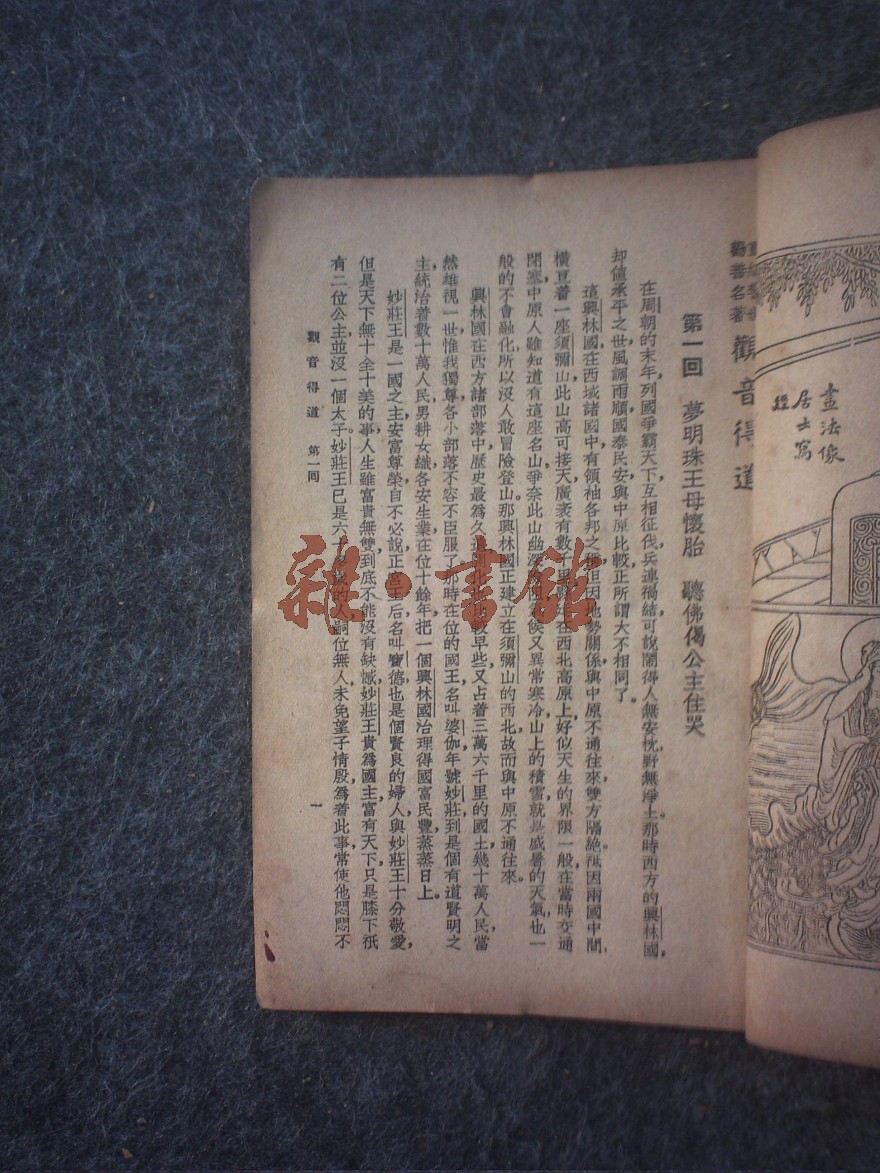 勸善名著 觀音得道
第一回 夢明珠王母懷胎 聽佛偈公主住哭
在周朝的末年,列國爭霸,天下互相征伐,兵連禍結,可說鬧得人無安枕,野無淨土。那時西方的興林國,
却值承平之世,風調雨順,國泰民安,與中原比較,正所謂大不相同了。
這興林國在西域諸國中,有領袖各邦之 但因地勢關係,與中原不通往來,雙方隔絶。祇因兩國中間,
橫亘着一座須彌山,此山高可接天,廣袤有數千里 在西北高原上,好似天生的界限一般,在當時交通
閉塞,中原人雖知道有這座名山,爭奈此山幽深 候又異常寒冷,山上的積雪,就是盛暑的天氣,也一
般的不會融化,所以沒人敢冒險登山。那興林國正建立在須彌山的西北,故而與中原不通往來。
興林國在西方諸部落中,歷史最爲久 較早些,又占着三萬六千里的國土,幾十萬人民,當
然雄視一世,惟我獨尊,各小部落不容不臣服了。那時在位的國王,名叫婆伽,年號妙莊,到是個有道賢明之
主,統治着數十萬人民,男耕女織,各安生業,在位十餘年,把一個興林國治理得國富民豐,蒸蒸日上。
妙莊王是一國之主,安富尊榮,自不必說,正宮王后,名叫寶德,也是個賢良的婦人,與妙莊王十分敬愛,
但是天下無十全十美的事,人生雖富貴無雙,到底不能沒有缺憾,妙莊王貴爲國主,富有天下,只是膝下祇
有二位公主,並沒一個太子,妙莊王已是六 歲的人,嗣位無人,未免望子情殷,爲着此事,常使他悶悶不
觀音得道 第一回
一
畫法像
居士寫
雜·書館